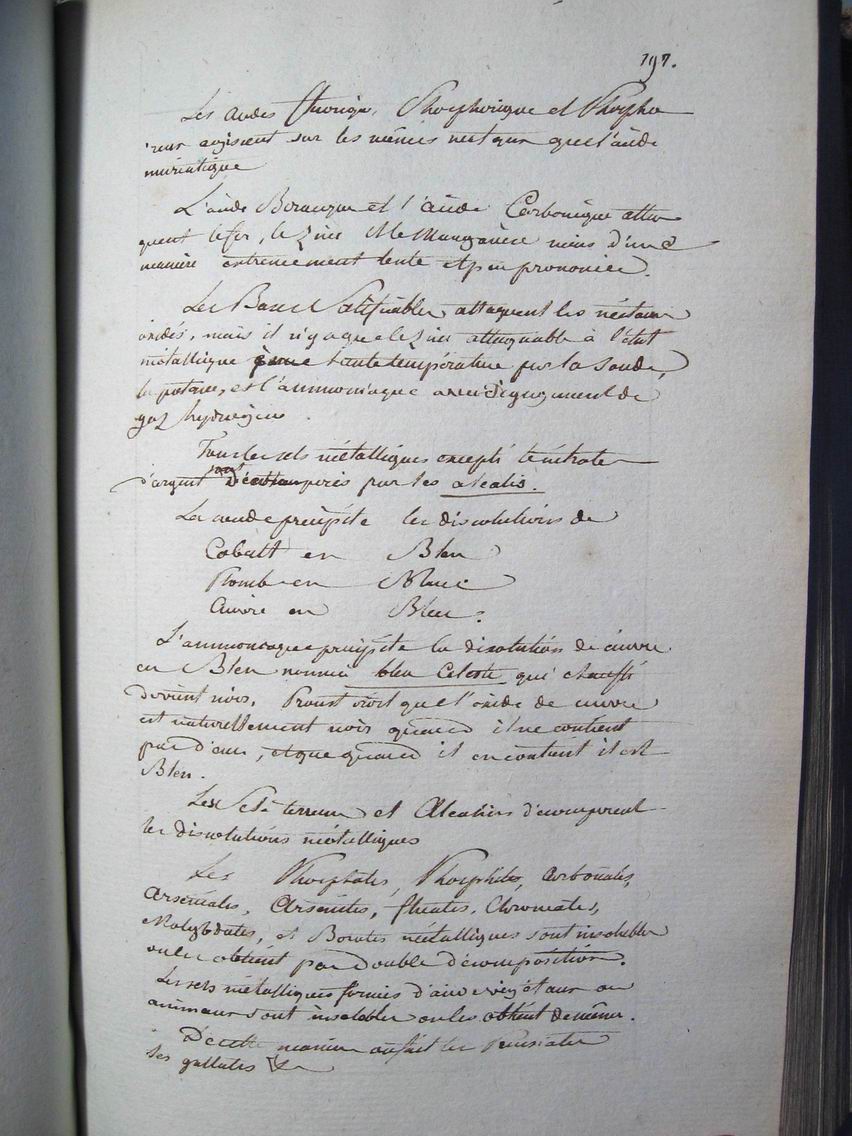 197.
Les acides fluorique, Phosphorique et Phospho
reux agissent sur les mêmes métaux que l'acide
muriatique
L'acide Boracique et l'acide Carbonique atta
quent le fer, le Zinc et le Manganèse mais d'une
manière extremement lente et peu prononcée.
Les Bases Salifiables attaquent les métaux
oxidés, mais il n'y a que le Zinc attaquable à l'état
métallique haute température par la soude,
la potasse, et l'ammoniaque avec dégagement de
gaz hydrogène.
Tous les sels métalliques excepté le nitrate
d'argent sont décomposés par les alcalis.
La soude précipite les dissolutions de
Cobalt en Bleu
Plomb en Blanc
Cuivre en Bleu.
L'ammoniaque précipite la dissolution de cuivre
en Bleu nommé bleu Celeste qui chauffé
devient noir. Proust croit que l'oxide de cuivre
est naturellement noir quand il ne contient
pas d'eau, et que quand il en contient il est
Bleu.
Les Sels terreux et Alcalins décomposent
les dissolutions métalliques
Les Phosphates, Phosphites, Carbonates,
Arseniates, Arsenites, fluates, Chromates,
Molybdates, et Borates métalliques sont insolubles
on les obtient par double décomposition.
Les sels métalliques formés d'acides végétaux ou
animaux sont insolubles on les obtient de même.
De cette manière on fait les Prussiates
les gallates &c